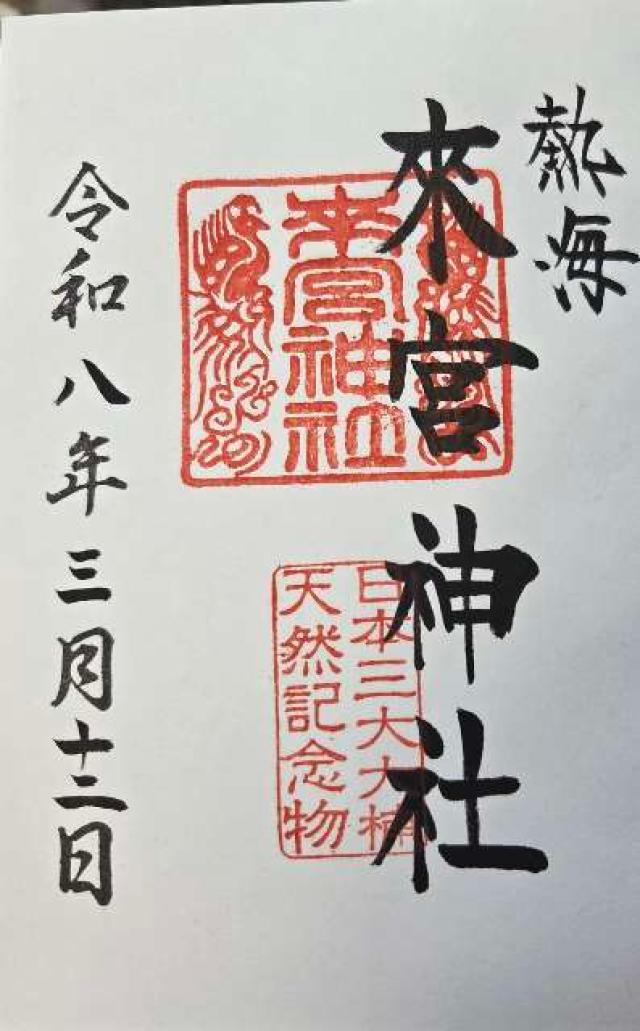 熱海
來宮神社
来宮神社
日本三大大楠
天然記念物
令和八年三月十二日